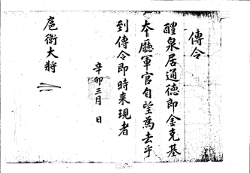 傳令
醴泉居通德郎金克基
本廳軍官自望爲去乎
到傳令卽時來現者
辛卯三月 日
扈衛大將